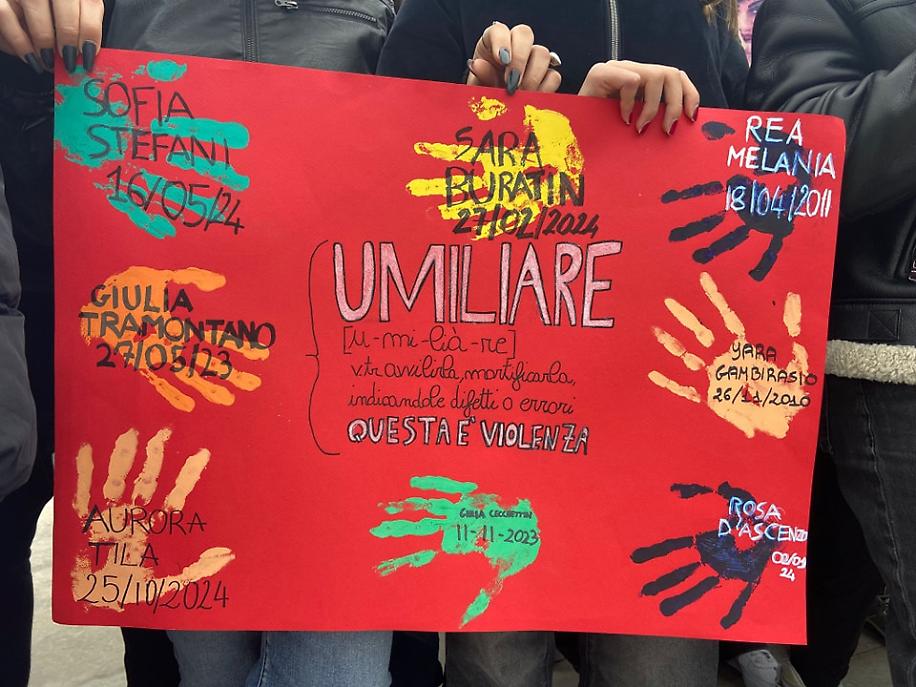 SOFIA
STEFANI
16/05/24
SARA
BURATIN
27/02/2024
REA
MELANIA
18/04/2011
GIULIA
TRAMONTANO
27/05/23
UMILIARE
[u-mi-lià-re]
v.tr avvilirla, mortificarla,
indicandole difetti o errori
QUESTA È VIOLENZA
YARA
GAMBIRASIO
26/11/2010
AURORA
TILA
25/10/2024
GIULIA CECCHETTIN
11-11-2023
ROSA
D'ASCENZO
02/01
24